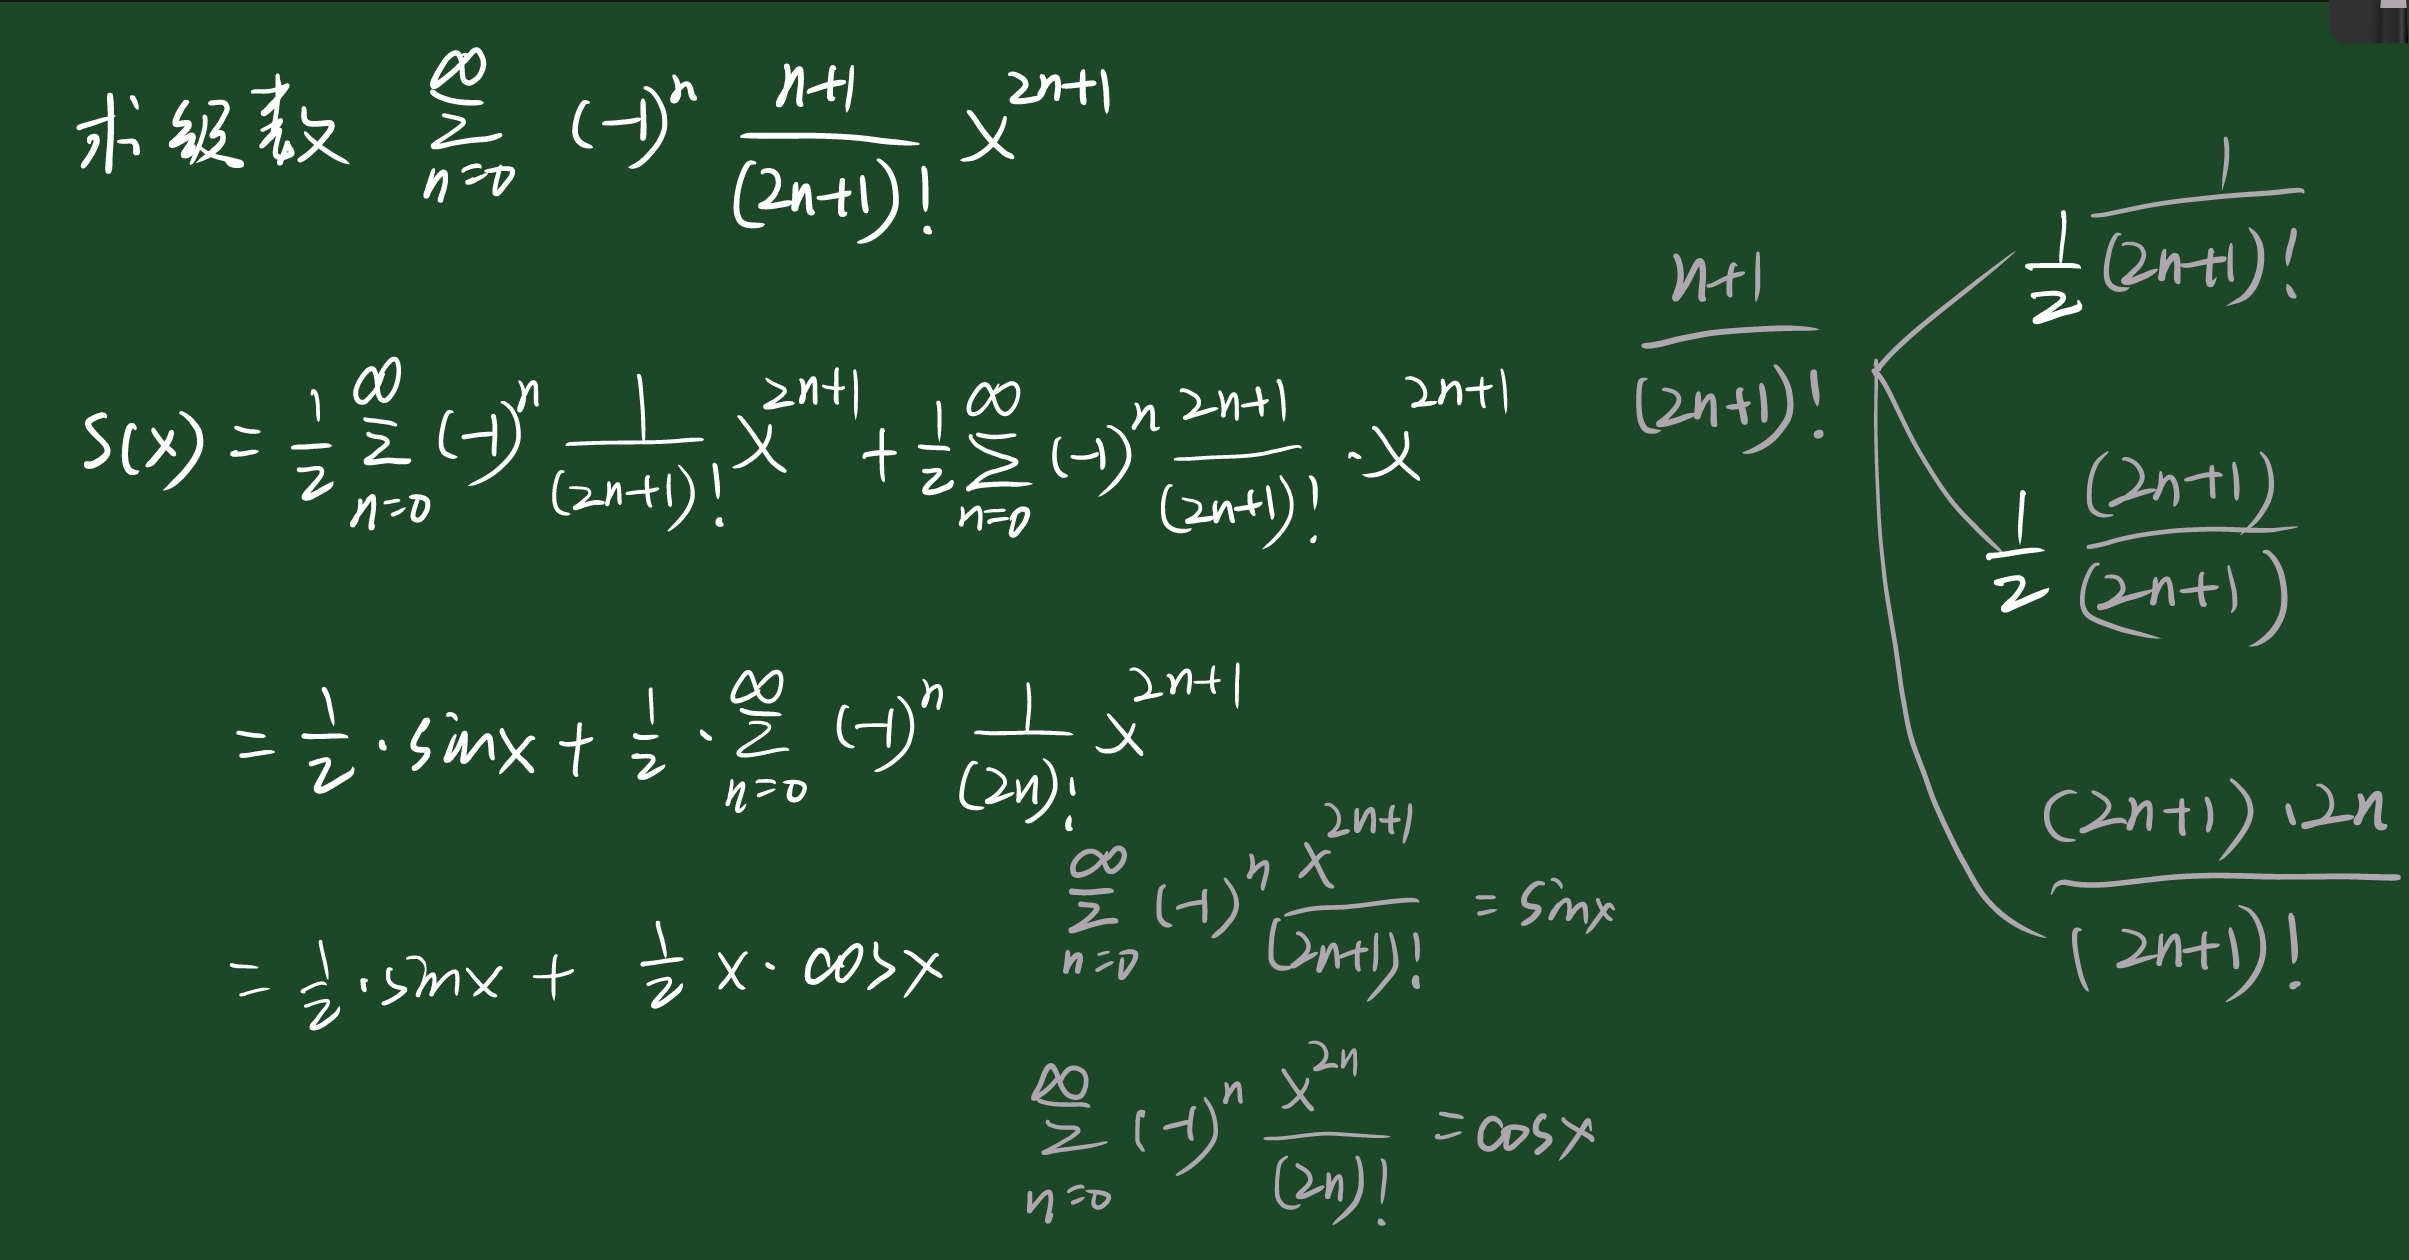 求级数 \sum_{n=0}^{\infty} (-1)^n \frac{n+1}{(2n+1)!} x^{2n+1}
S(x) = \frac{1}{2} \sum_{n=0}^{\infty} (-1)^n \frac{1}{(2n+1)!} x^{2n+1} + \frac{1}{2} \sum_{n=0}^{\infty} (-1)^n \frac{2n+1}{(2n+1)!} \cdot x^{2n+1}
= \frac{1}{2} \cdot sinx + \frac{1}{2} \cdot \sum_{n=0}^{\infty} (-1)^n \frac{1}{(2n)!} x^{2n+1}
= \frac{1}{2} \cdot sinx + \frac{1}{2} x \cdot cosx
\sum_{n=0}^{\infty} (-1)^n \frac{x^{2n+1}}{(2n+1)!} = sinx
\sum_{n=0}^{\infty} (-1)^n \frac{x^{2n}}{(2n)!} = cosx
\frac{n+1}{(2n+1)!}
\frac{1}{2} \frac{1}{(2n+1)!}
\frac{1}{2} \frac{(2n+1)}{(2n+1)}
\frac{(2n+1) \cdot 2n}{(2n+1)!}